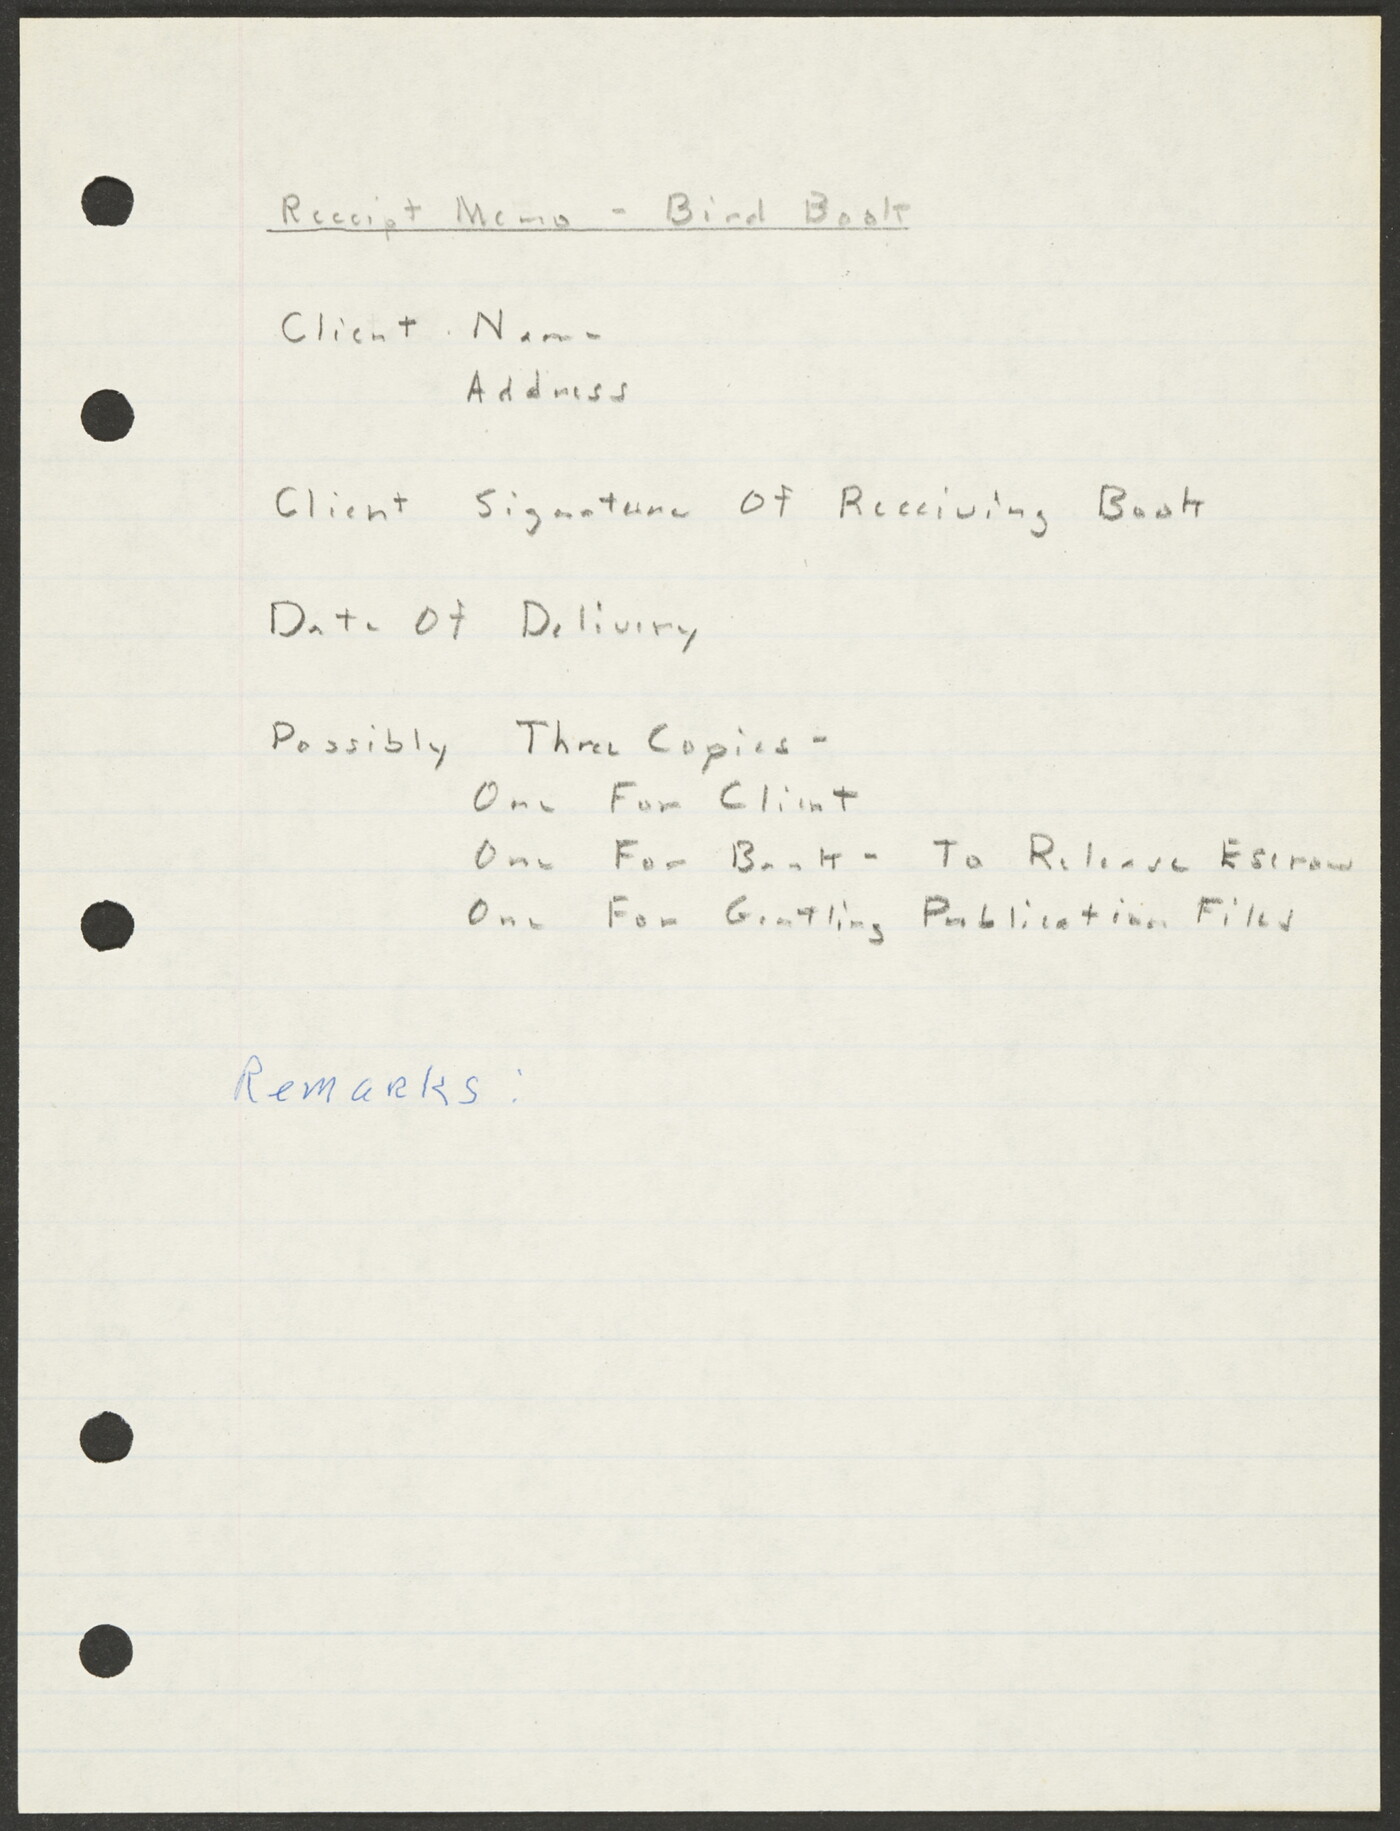 Receipt Memo - Bird Book
Client Name
Address
Client Signature Of Receiving Book
Date Of Delivery
Possibly Three Copies -
One For Client
One For Bank - To Release Escrow
One For Gentling Publication Files
Remarks: